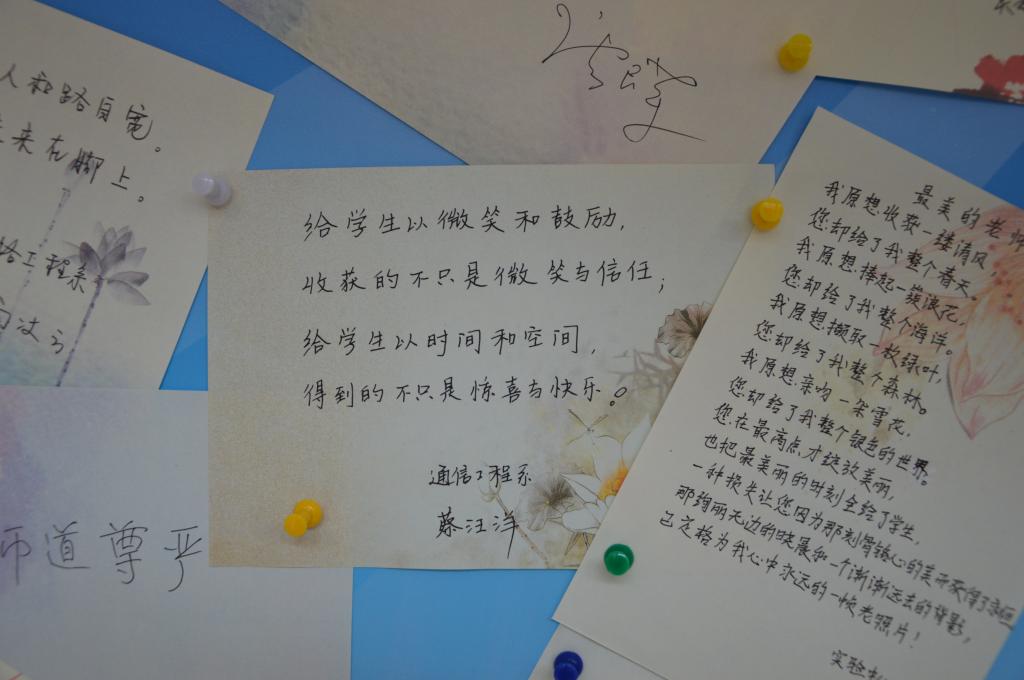 人和路自宽。
来在脚上。
工程系
给学生以微笑和鼓励,
收获的不只是微笑与信任;
给学生以时间和空间,
得到的不只是惊喜与快乐。
通信工程系
蔡汪洋
师道尊严
最美的老师
我原想,收获一缕清风
您却给了我整个春天。
我原想,捧起一簇浪花,
您却给了我整个海洋。
我原想,撷取一枚绿叶,
您却给了我整个森林。
我原想,亲吻一朵雪花,
您却给了我整个银色的世界。
您在最高点,才绽放美丽,
也把最美丽的时刻全给了学生,
一种损失让您因为那刻骨铭心的美而获得了永恒
那绚丽无边的晓晨和一个渐渐远去的背影,
已定格为我心中永远的一帧老照片!
实验